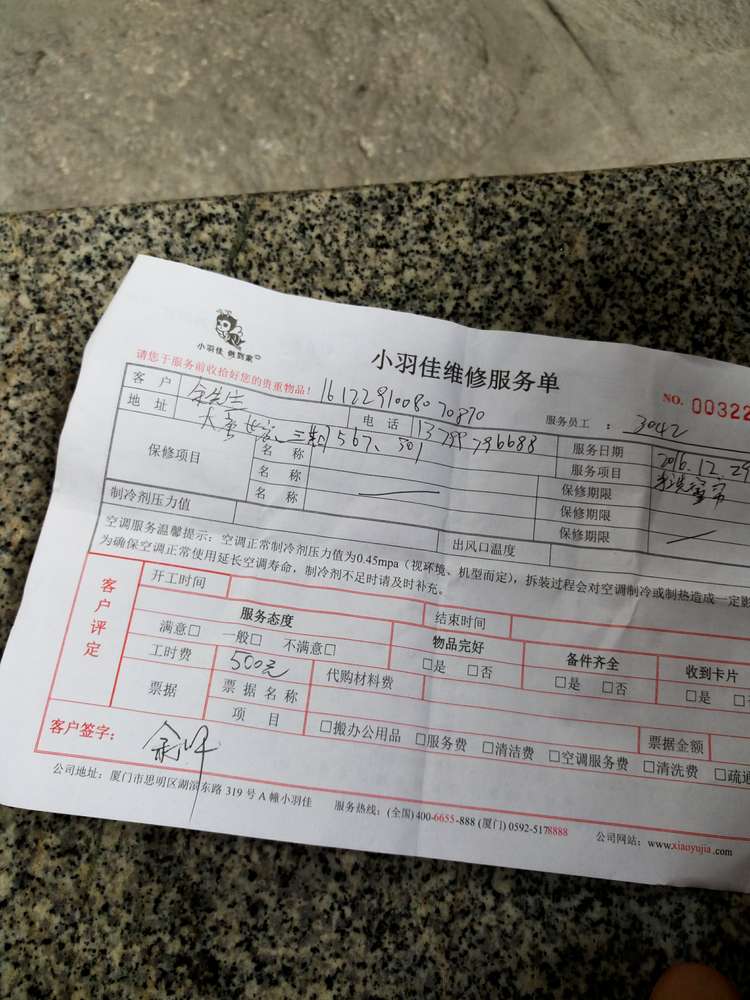 小羽佳 做到家
小羽佳维修服务单
请您于服务前收拾好您的贵重物品! 1612291008070870
服务员工 : 3042
NO. 00322
客 户
电 话 13799796688
服务日期 2016.12.29
地 址 567、301
服务项目
保修项目
名 称 保修期限
名 称 保修期限
名 称 保修期限
制冷剂压力值
出风口温度
空调服务温馨提示:空调正常制冷剂压力值为0.45mpa(视环境、机型而定),拆装过程会对空调制冷或制热造成一定影
为确保空调正常使用延长空调寿命,制冷剂不足时请及时补充。
客户评定
开工时间 结束时间
服务态度 物品完好 备件齐全 收到卡片
满意□ 一般□ 不满意□ □是 □否 □是 □否 □是 □
工时费 500元 代购材料费
票据 票 据 名 称 票据金额
项 目 □搬办公用品 □服务费 □清洁费 □空调服务费 □清洗费 □疏通
客户签字:
公司地址:厦门市思明区湖滨东路 319 号 A 幢小羽佳 服务热线:(全国) 400-6655-888 (厦门) 0592-5178888 公司网站:www.xiaoyujia.com